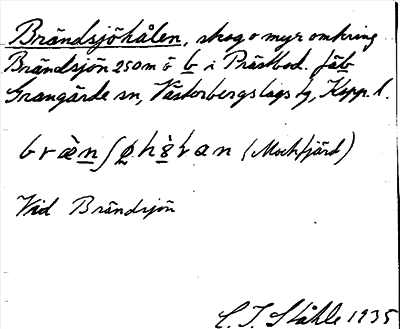 Brändsjöhålen, skog o myr omkring
Brändsjön 250 m ö b i Prästbod. fäb
Grangärde sn, Västerbergslags tg, Kopp. l.
(Mockfjärd)
Vid Brändsjön
C. I. Ståhle 1935